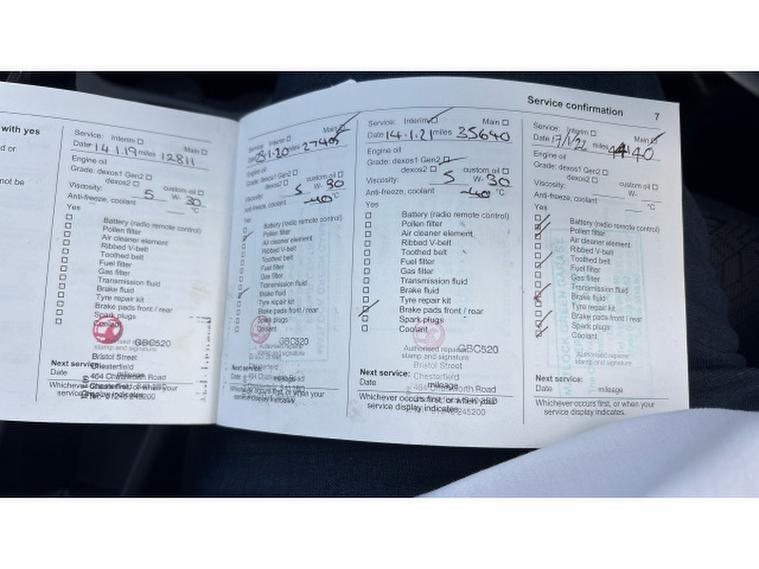 Service confirmation 7
with yes
d or
not be
Service: Interim Main
Date 14.1.19 miles 12811
Engine oil
Grade: dexos1 Gen2
dexos2 custom oil
Viscosity: 5 W- 30
Anti-freeze, coolant °C
Yes
Battery (radio remote control)
Pollen filter
Air cleaner element
Ribbed V-belt
Toothed belt
Fuel filter
Gas filter
Transmission fluid
Brake fluid
Tyre repair kit
Brake pads front / rear
Spark plugs
Coolant
GBC520
Authorised repairer
stamp and signature
Bristol Street
Next service: Chesterfield
Date mileage
464 Chatsworth Road
Whichever occurs first, or when your
service display indicates.
Service Interim Main
Date miles 27405
Engine oil
Grade: dexos1 Gen2
dexos2 custom oil
Viscosity: 5 W- 30
Anti-freeze, coolant -40 °C
Yes
Battery (radio remote control)
Pollen filter
Air cleaner element
Ribbed V-belt
Toothed belt
Fuel filter
Gas filter
Transmission fluid
Brake fluid
Tyre repair kit
Brake pads front / rear
Spark plugs
Coolant
GBC520
Authorised repairer
stamp and signature
Next service:
Date mileage
Whichever occurs first, or when your
service display indicates.
Service: Interim Main
Date 14.1.21 miles 35640
Engine oil
Grade: dexos1 Gen2
dexos2 custom oil
Viscosity: 5 W- 30
Anti-freeze, coolant -40 °C
Yes
Battery (radio remote control)
Pollen filter
Air cleaner element
Ribbed V-belt
Toothed belt
Fuel filter
Gas filter
Transmission fluid
Brake fluid
Tyre repair kit
Brake pads front / rear
Spark plugs
Coolant
GBC520
Authorised repairer
stamp and signature
Bristol Street
Next service: Chesterfield
Date mileage
464 Chatsworth Road
Whichever occurs first, or when your
service display indicates.
Service: Interim Main
Date 17/1/22 miles
Engine oil
Grade: dexos1 Gen2
dexos2 custom oil
Viscosity: W-
Anti-freeze, coolant °C
Yes
Battery (radio remote control)
Pollen filter
Air cleaner element
Ribbed V-belt
Toothed belt
Fuel filter
Gas filter
Transmission fluid
Brake fluid
Tyre repair kit
Brake pads front / rear
Spark plugs
Coolant
Authorised repairer
stamp and signature
Next service:
Date mileage
Whichever occurs first, or when your
service display indicates.